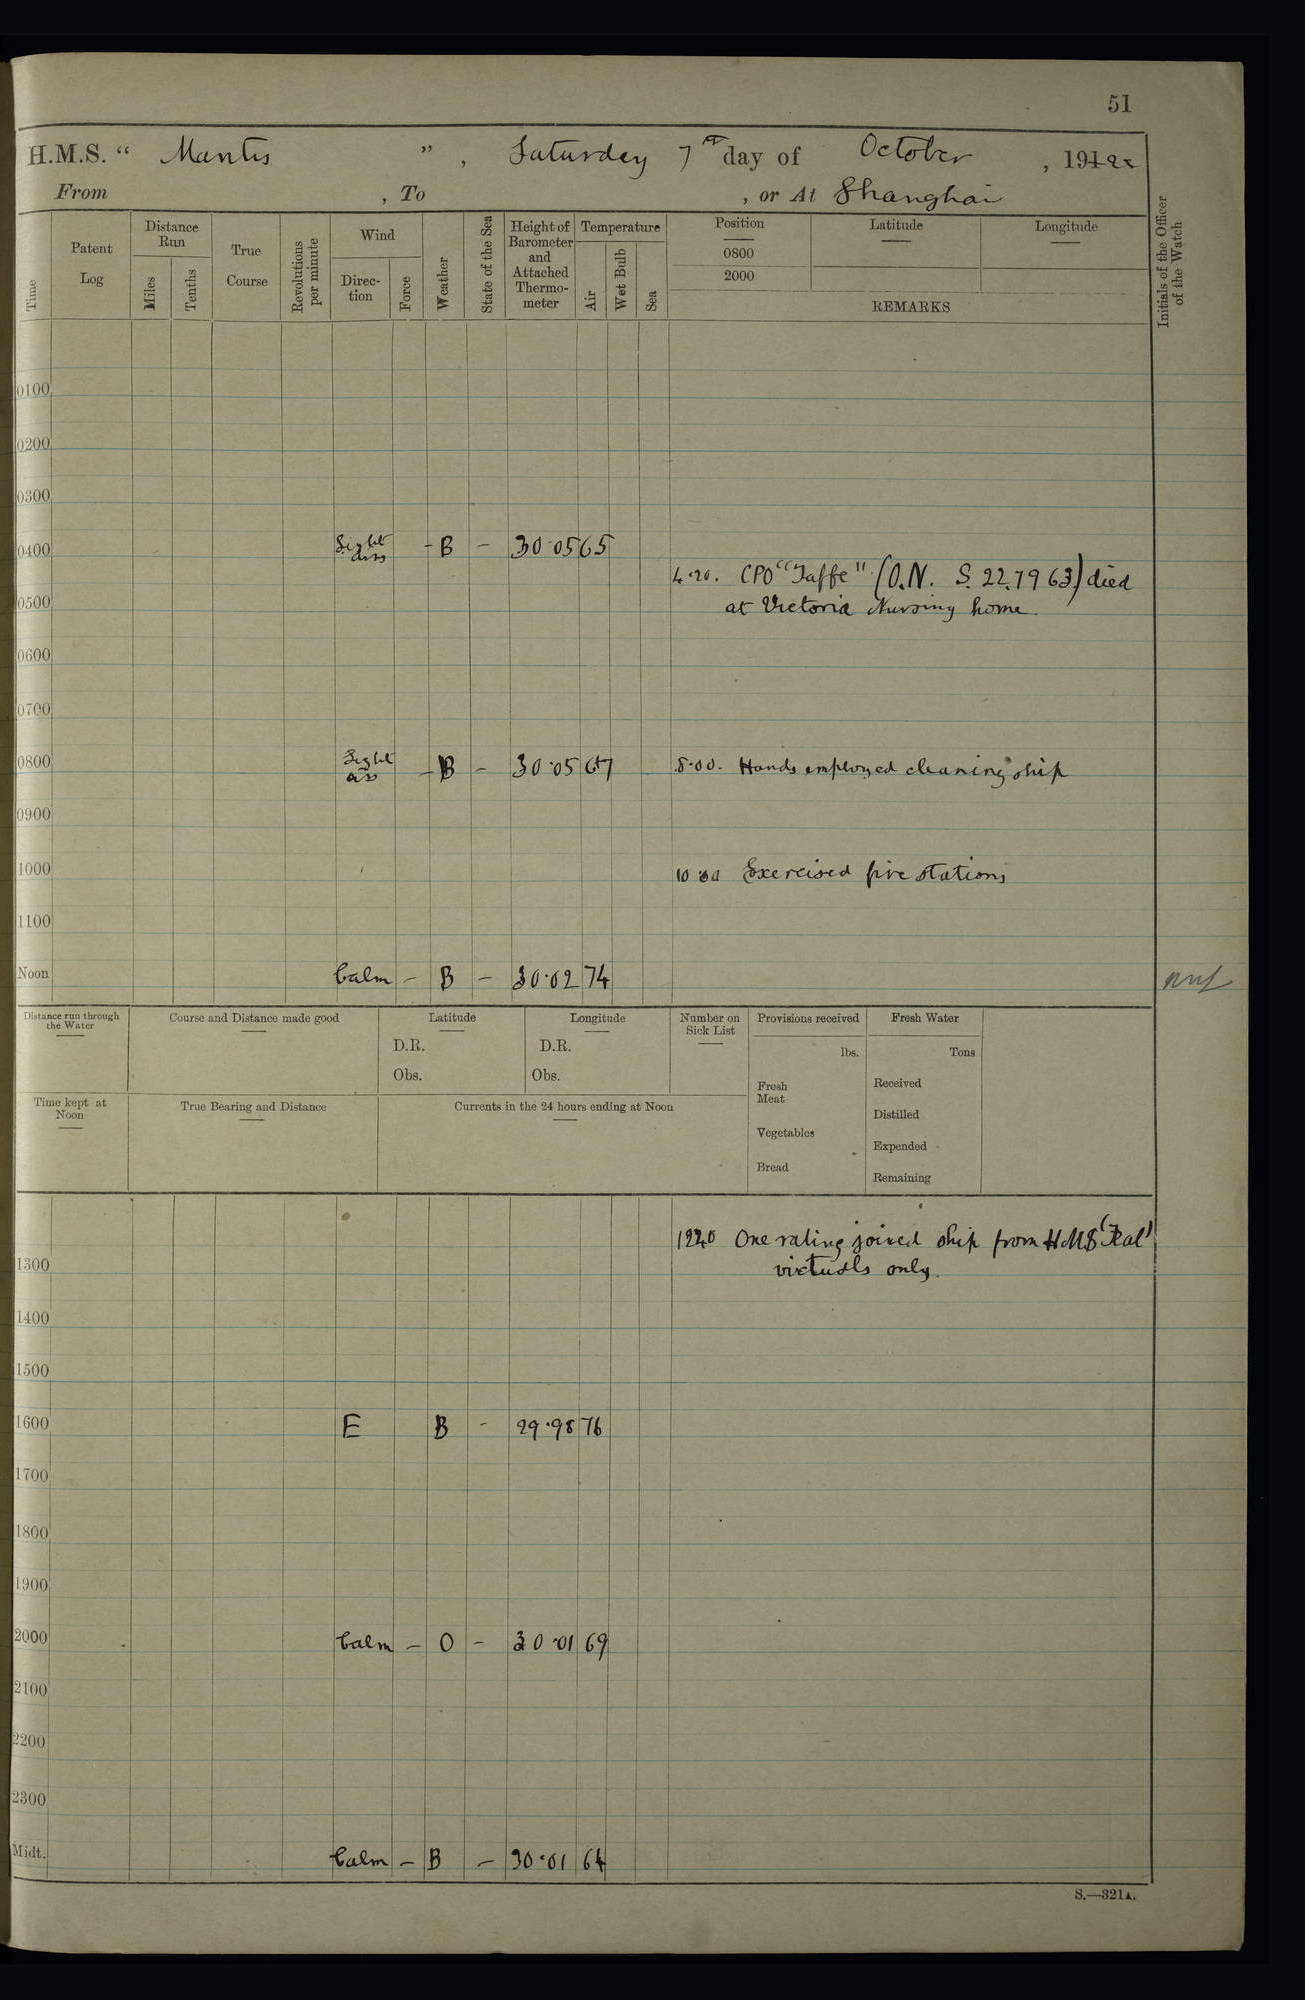 51
H.M.S. " Mantis ", Saturday 7th day of October, 1922
From , To , or At Shanghai
Time
Patent Log
Distance Run
Miles
Tenths
True Course
Revolutions per minute
Wind
Direction
Force
Weather
State of the Sea
Height of Barometer and Attached Thermometer
Temperature
Air
Wet Bulb
Sea
Position
0800
2000
Latitude
Longitude
REMARKS
Initials of the Officer of the Watch
0100
0200
0300
0400 Light airs - B - 30·05 65
4·20. CPO "Jaffe" (O.N. S. 227963) died
0500 at Victoria Nursing home.
0600
0700
0800 Light airs - B - 30·05 67 8·00. Hands employed cleaning ship
0900
1000 Exercised fire stations
1100
Noon Calm - B - 30·02 74
Distance run through the Water
Course and Distance made good
Latitude
D.R.
Obs.
Longitude
D.R.
Obs.
Number on Sick List
Provisions received
lbs.
Fresh Meat
Vegetables
Bread
Fresh Water
Tons
Received
Distilled
Expended
Remaining
Time kept at Noon
True Bearing and Distance
Currents in the 24 hours ending at Noon
1240 One rating joined ship from HMS 'Teal'
1300 victuals only.
1400
1500
1600 E B - 29·98 76
1700
1800
1900
2000 Calm - O - 30·01 69
2100
2200
2300
Midt. Calm - B - 30·01 64
S.—321A.